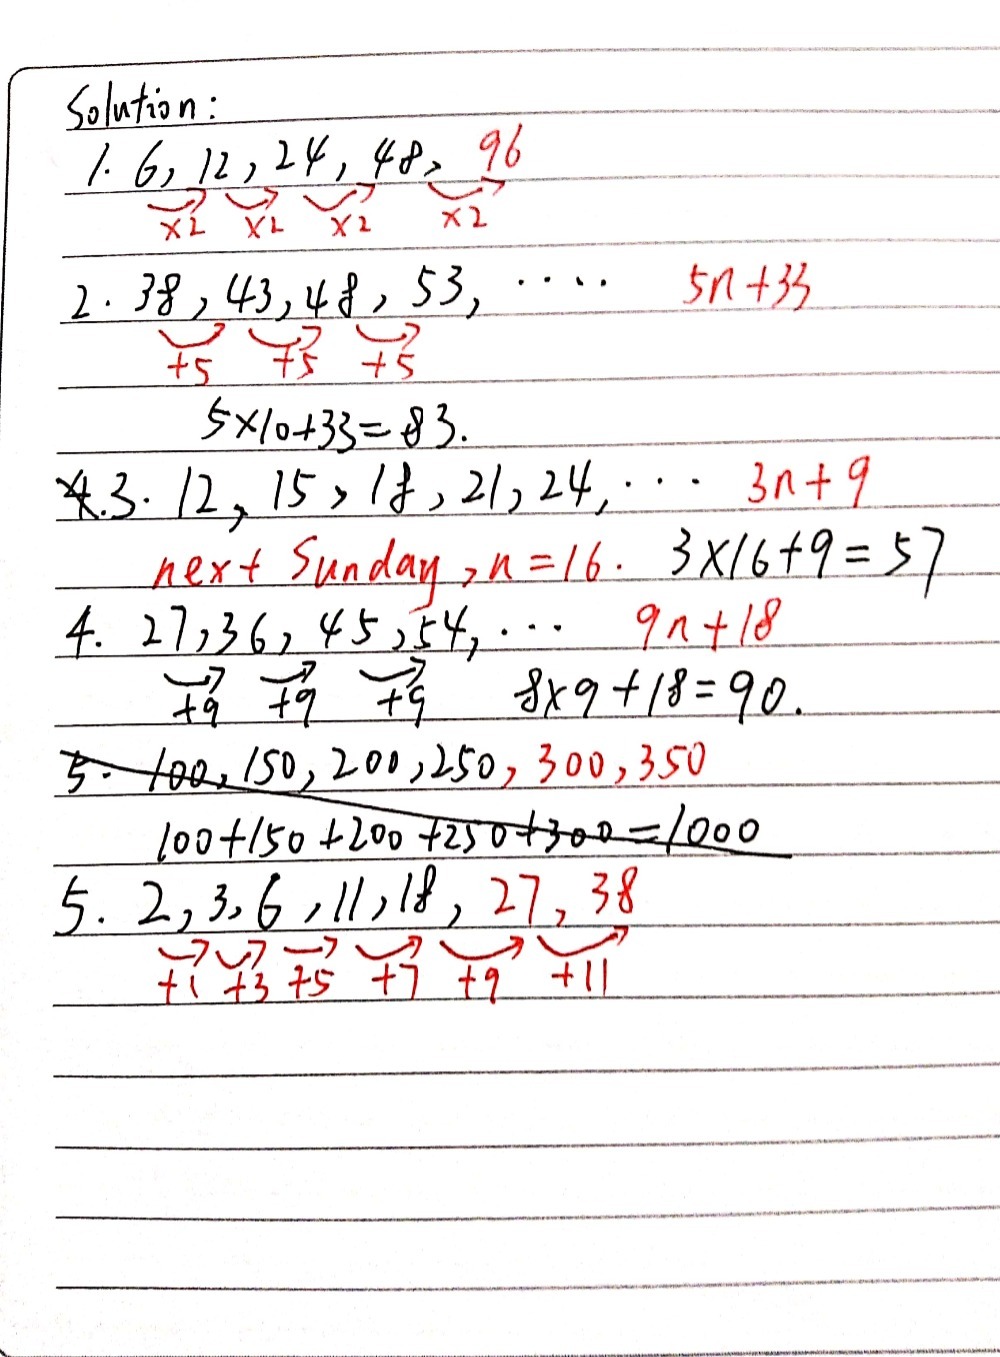 Solution:
1. 6, 12, 24, 48, 96
×2 ×2 ×2 ×2
2. 38, 43, 48, 53, .... 5n+33
+5 +5 +5
5×10+33=83.
3. 12, 15, 18, 21, 24, ... 3n+9
next Sunday, n=16. 3×16+9=57
4. 27, 36, 45, 54, ... 9n+18
+9 +9 +9 8×9+18=90.
5. 100, 150, 200, 250, 300, 350
100+150+200+250+300=1000
5. 2, 3, 6, 11, 18, 27, 38
+1 +3 +5 +7 +9 +11